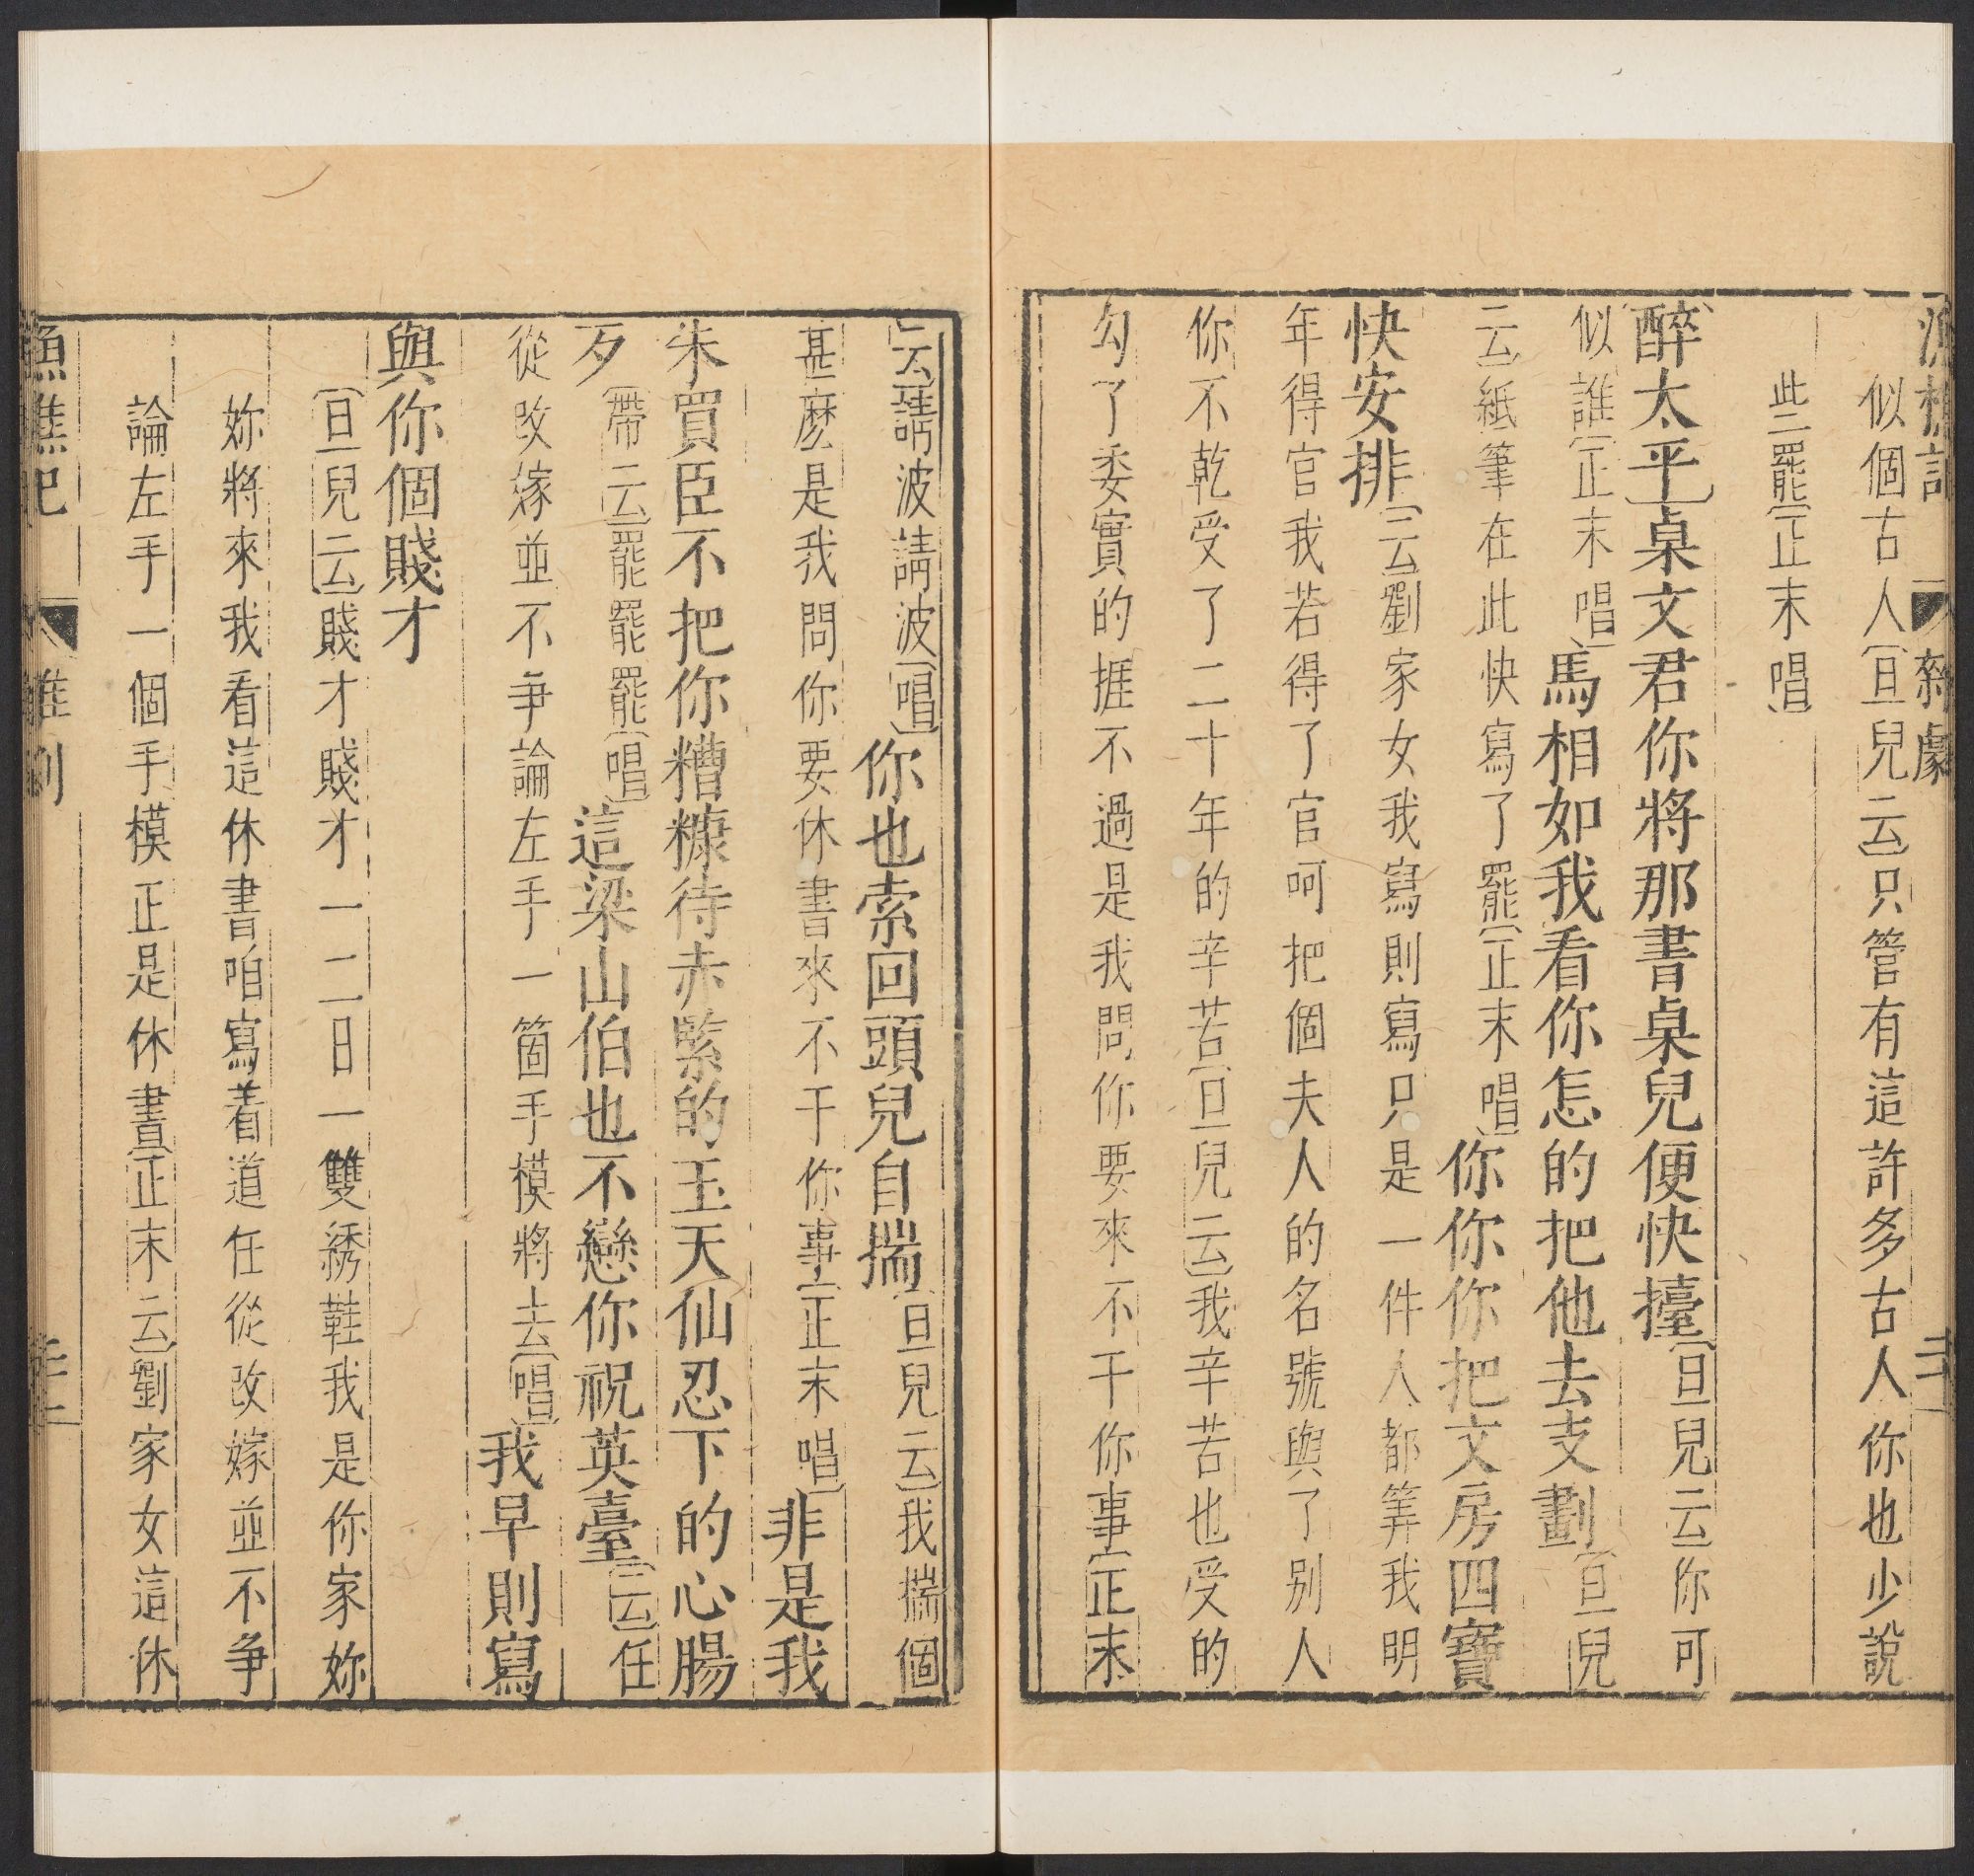 漁樵記 雜劇
似個古人〔旦兒云〕只管有這許多古人你也少說
些罷〔正末唱〕
醉太平〕卓文君你將那書卓兒便快擡〔旦兒云〕你可
似誰〔正末唱〕馬相如我看你怎的把他去支劃〔旦兒
云〕紙筆在此快寫了罷〔正末唱〕你你你把文房四寶
快安排〔云〕劉家女我寫則寫只是一件人都筭我明
年得官我若得了官呵把個夫人的名號與了别人
你不乾受了二十年的辛苦〔旦兒云〕我辛苦也受的
勾了委實的捱不過是我問你要來不干你事〔正末
云〕請波請波〔唱〕你也索回頭兒自揣〔旦兒云〕我揣個
甚麽是我問你要休書來不干你事〔正末唱〕非是我
朱買臣不把你糟糠待赤緊的玉天仙忍下的心腸
歹〔帶云〕罷罷罷〔唱〕這梁山伯也不戀你祝英臺〔云〕任
從改嫁並不争論左手一箇手模將去〔唱〕我早則寫
與你個賤才
〔旦兒云〕賤才賤才一二日一雙綉鞋我是你家妳
妳將來我看這休書咱寫着道任從改嫁並不争
論左手一個手模正是休書〔正末云〕劉家女這休
漁樵記 雜劇